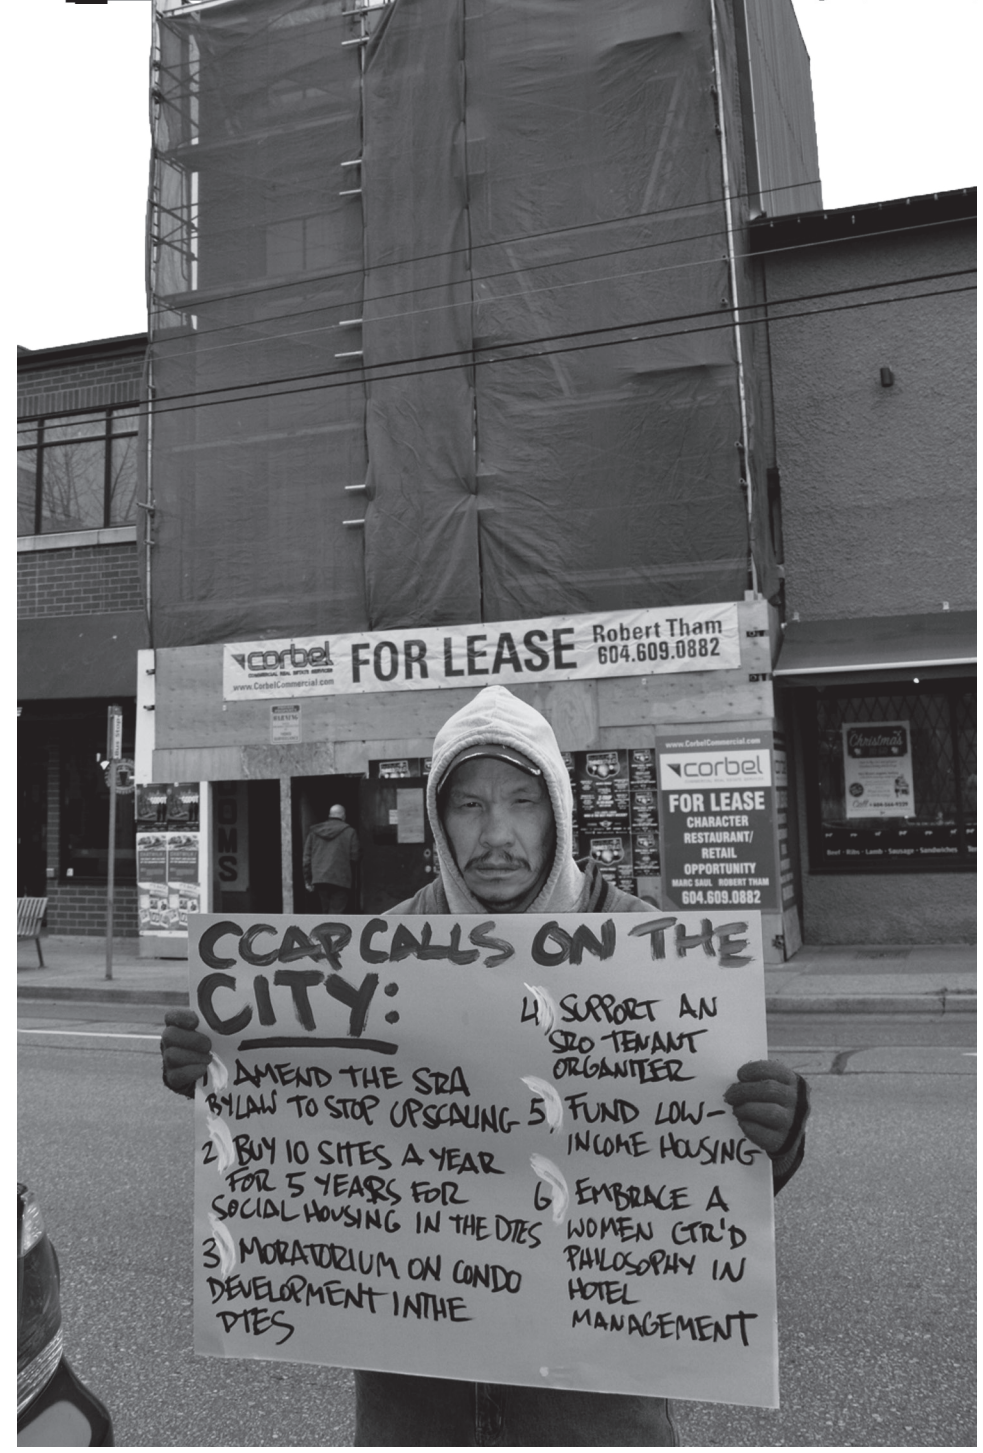 corbel
COMMERCIAL REAL ESTATE SERVICES
www.CorbelCommercial.com
FOR LEASE
Robert Tham
604.609.0882
WARNING
Bus Stop
OMS
www.CorbelCommercial.com
corbel
FOR LEASE
CHARACTER
RESTAURANT/
RETAIL
OPPORTUNITY
MARC SAUL ROBERT THAM
604.609.0882
Christmas
Beef · Ribs · Lamb · Sausage · Sandwiches
CCAP CALLS ON THE
CITY:
1 AMEND THE SRA
BYLAW TO STOP UPSCALING
2 BUY 10 SITES A YEAR
FOR 5 YEARS FOR
SOCIAL HOUSING IN THE DTES
3 MORATORIUM ON CONDO
DEVELOPMENT IN THE
DTES
4 SUPPORT AN
SRO TENANT
ORGANIZER
5 FUND LOW-
INCOME HOUSING
6 EMBRACE A
WOMEN CTR'D
PHILOSOPHY IN
HOTEL
MANAGEMENT